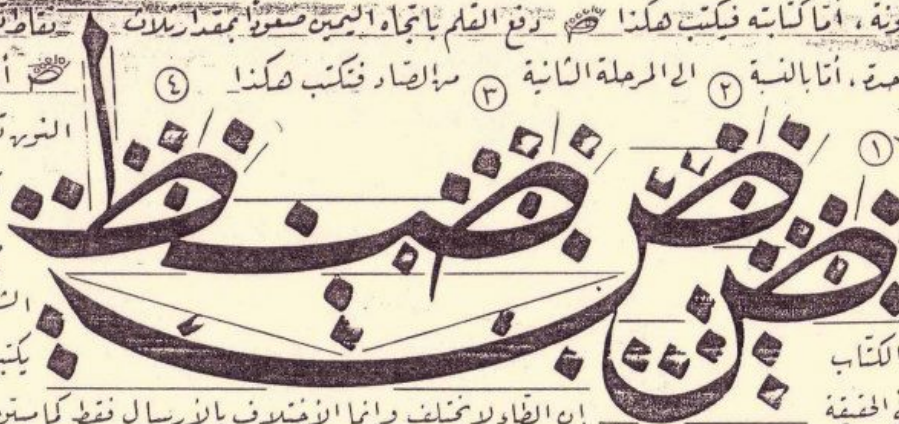 ونة ، أمّا كتابته فيكتب هكذا دفع القلم باتجاه اليمين صعوداً بمقدار ثلاث نقاط
حدة ، أمّا بالنسبة ٢ الى المرحلة الثانية ٣ من الصاد فتكتب هكذا ٤
١ النون
ض ض ضـ ظ
الكتاب
الحقيقة ان الظاء لا تختلف وانما الأختلاف بالأرسال فقط كما